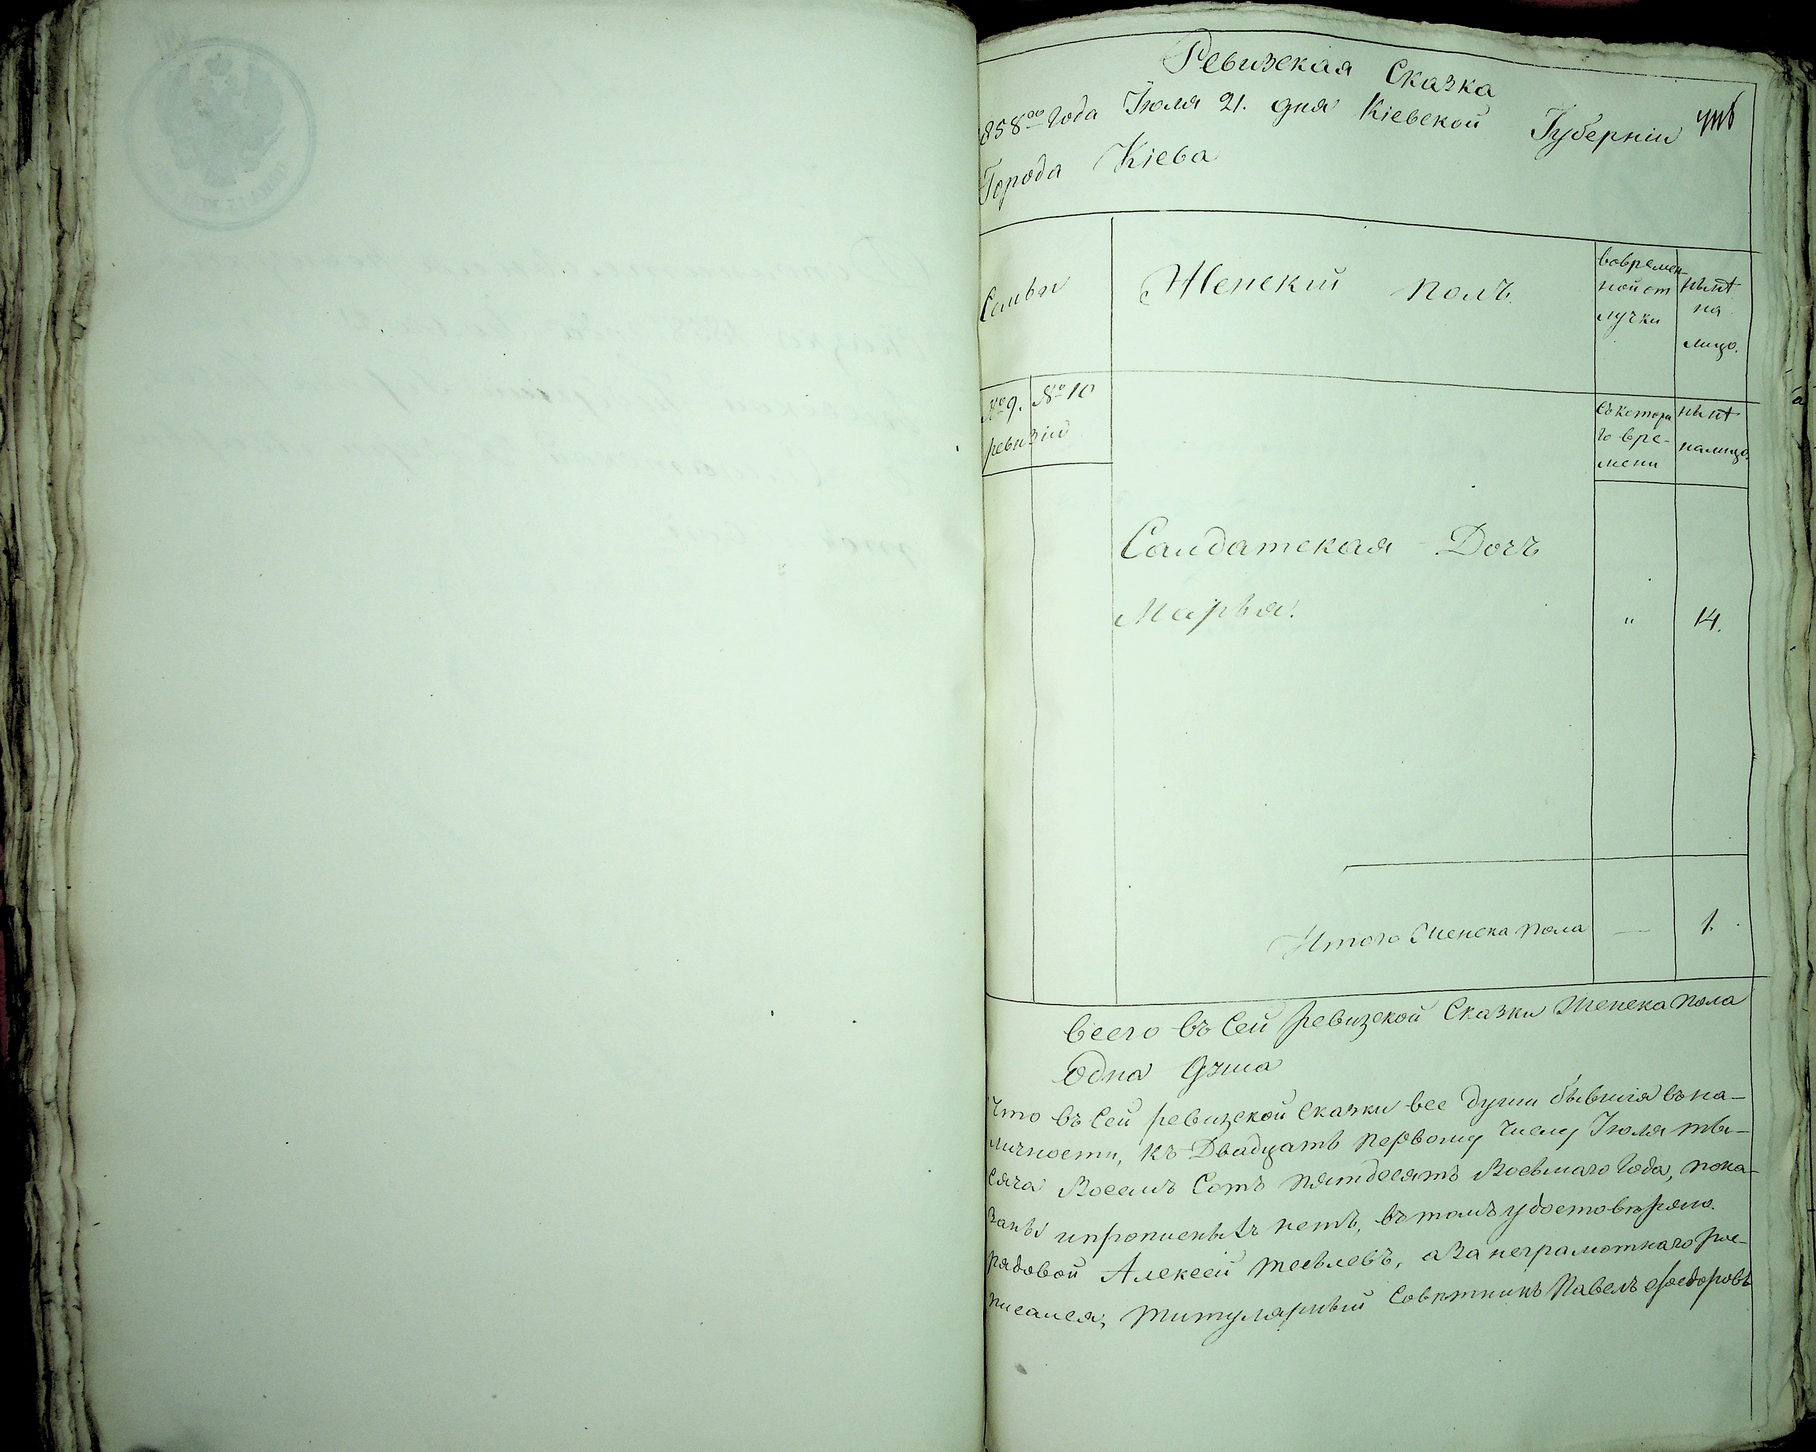 Ревизская Сказка
1858го Года Июля 21. дня Кіевской Губерніи
Города Кіева
Семьи
Женский полъ
вовремен-
ной от
лучки
нынѣ
на
лицо.
№ 9. № 10
ревизіи
съкотора
го вре-
мени
нынѣ
налицо
Салдатская Дочъ
Марья.
" 14.
Итого Женска пола — 1.
всего въ Сей ревизской Сказки Женска пола
Одна Душа
Что въ Сей ревизской сказки все души бывшія въна-
личности, къ Двадцать первому числу Июля ты-
сяча Восемь Сотъ пятдесятъ Восьмаго Года, пока-
заны ипрописныхъ нетъ, въ томъ удостовѣряю.
рядовой Алексей аза неграмотнаго рос-
писался, титулярный Совѣтникъ Павелъ Федоровъ